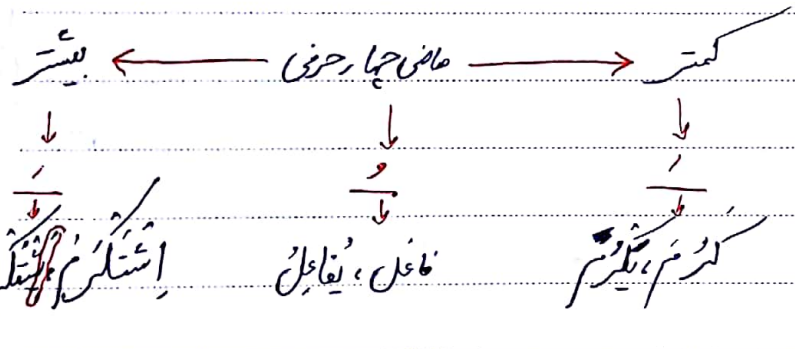 کمتر → ماضی چهار حرفی ← بیشتر
↓ ↓ ↓
َ ُ َ
↓ ↓ ↓
کَرُمَ ، یَکْرُمُ فاعَل ، یُفاعِلُ اِسْتَکْرَمَ ،